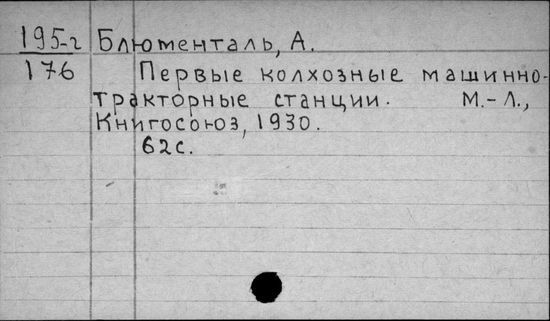 195-г Блюменталь, А.
176 Первые колхозные машинно-
тракторные станции. М.-Л.,
Книгосоюз, 1930.
62с.